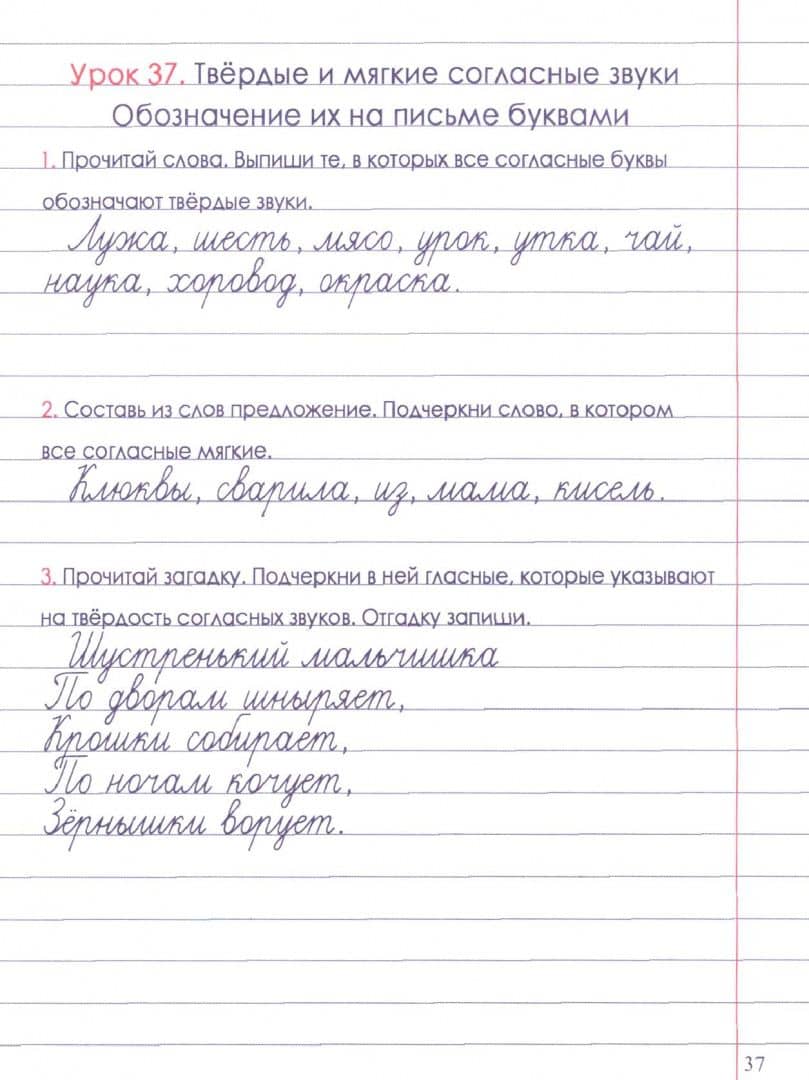 Урок 37. Твёрдые и мягкие согласные звуки
Обозначение их на письме буквами
1. Прочитай слова. Выпиши те, в которых все согласные буквы
обозначают твёрдые звуки.
Лужа, шесть, мясо, урок, утка, чай,
наука, хоровод, окраска.
2. Составь из слов предложение. Подчеркни слово, в котором
все согласные мягкие.
Клюквы, сварила, из, мама, кисель.
3. Прочитай загадку. Подчеркни в ней гласные, которые указывают
на твёрдость согласных звуков. Отгадку запиши.
Шустренький мальчишка
По дворам шныряет,
Крошки собирает,
По ночам кочует,
Зёрнышки ворует.
37